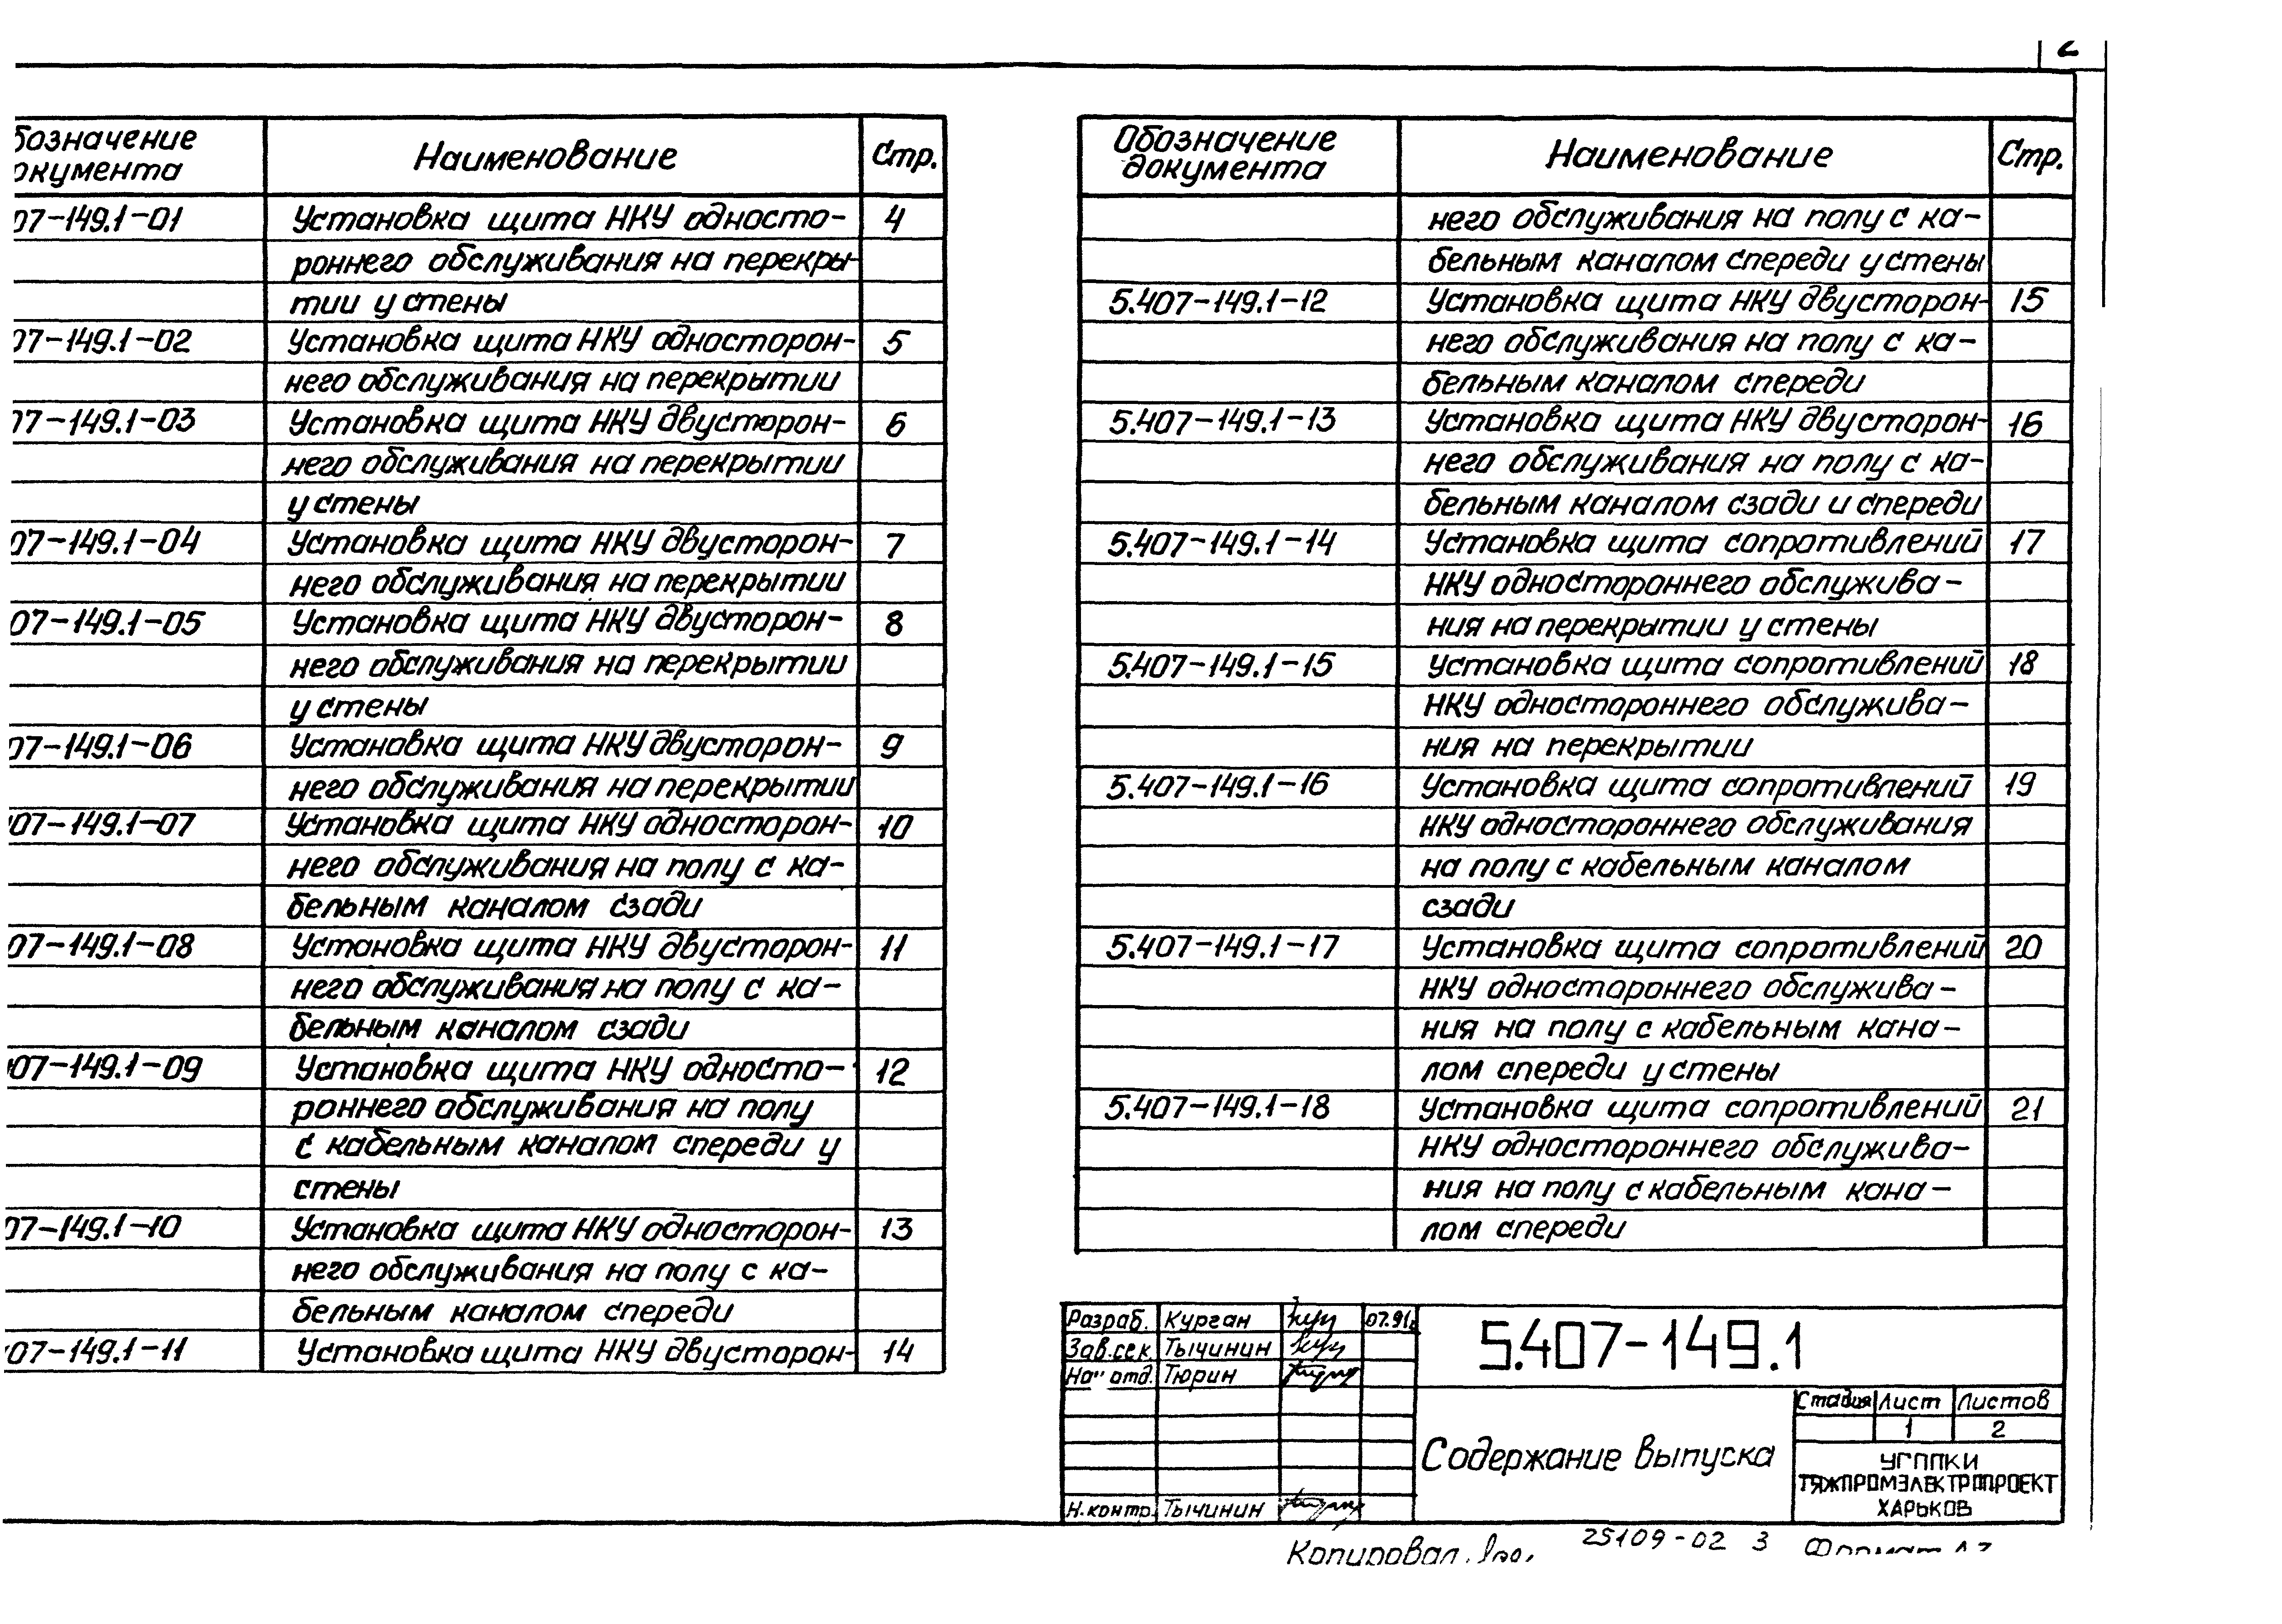 бозначение Наименование Стр.
окумента
07-149.1-01 Установка щита НКУ односто- 4
роннего обслуживания на перекры-
тии у стены
07-149.1-02 Установка щита НКУ односторон- 5
него обслуживания на перекрытии
07-149.1-03 Установка щита НКУ двусторон- 6
него обслуживания на перекрытии
у стены
07-149.1-04 Установка щита НКУ двусторон- 7
него обслуживания на перекрытии
07-149.1-05 Установка щита НКУ двусторон- 8
него обслуживания на перекрытии
у стены
07-149.1-06 Установка щита НКУ двусторон- 9
него обслуживания на перекрытии
07-149.1-07 Установка щита НКУ односторон- 10
него обслуживания на полу с ка-
бельным каналом сзади
07-149.1-08 Установка щита НКУ двусторон- 11
него обслуживания на полу с ка-
бельным каналом сзади
07-149.1-09 Установка щита НКУ односто- 12
роннего обслуживания на полу
с кабельным каналом спереди у
стены
07-149.1-10 Установка щита НКУ односторон- 13
него обслуживания на полу с ка-
бельным каналом спереди
07-149.1-11 Установка щита НКУ двусторон- 14
2
Обозначение Наименование Стр.
документа
него обслуживания на полу с ка-
бельным каналом спереди у стены
5.407-149.1-12 Установка щита НКУ двусторон- 15
него обслуживания на полу с ка-
бельным каналом спереди
5.407-149.1-13 Установка щита НКУ двусторон- 16
него обслуживания на полу с ка-
бельным каналом сзади и спереди
5.407-149.1-14 Установка щита сопротивлений 17
НКУ одностороннего обслужива-
ния на перекрытии у стены
5.407-149.1-15 Установка щита сопротивлений 18
НКУ одностороннего обслужива-
ния на перекрытии
5.407-149.1-16 Установка щита сопротивлений 19
НКУ одностороннего обслуживания
на полу с кабельным каналом
сзади
5.407-149.1-17 Установка щита сопротивлений 20
НКУ одностороннего обслужива-
ния на полу с кабельным кана-
лом спереди у стены
5.407-149.1-18 Установка щита сопротивлений 21
НКУ одностороннего обслужива-
ния на полу с кабельным кана-
лом спереди
Разраб. Курган 07.91г.
Зав.сек. Тычинин
Нач отд. Тюрин
Н.контр. Тычинин
5.407-149.1
Содержание выпуска
Стадия Лист Листов
1 2
УГППКИ
ТЯЖПРОМЭЛЕКТРОПРОЕКТ
ХАРЬКОВ
Копировал 25109-02 3 Формат А3